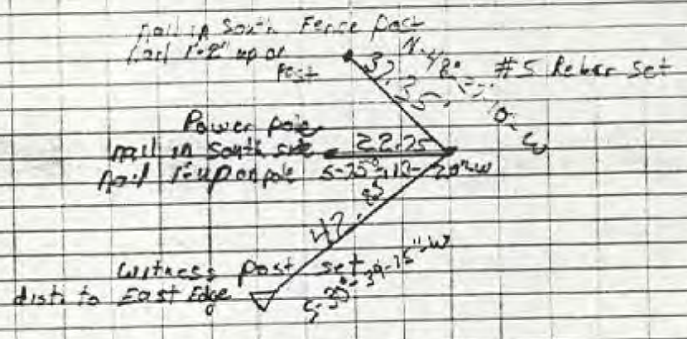 nail in South Fence post
nail 1'-2" up on
post
32.35
#5 Rebar Set
Power pole
nail in South side
nail 1' up on pole
22.25
42.85
Witness post set
dist. to East Edge